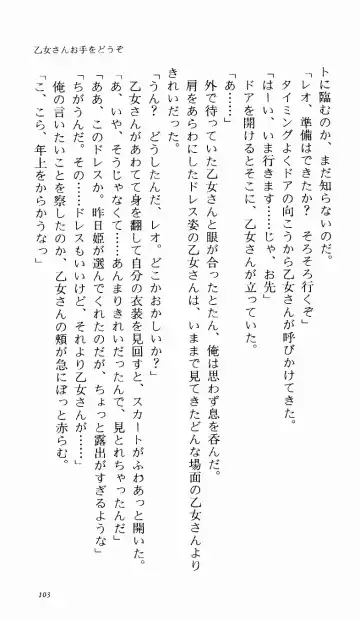 乙女さんお手をどうぞ
トに臨むのか、まだ知らないのだ。
「レオ、準備はできたか？　そろそろ行くぞ」
タイミングよくドアの向こうから乙女さんが呼びかけてきた。
「はーい、いま行きます……じゃ、お先」
ドアを開けるとそこに、乙女さんが立っていた。
「あ……」
外で待っていた乙女さんと眼が合ったとたん、俺は思わず息を呑んだ。
肩をあらわにしたドレス姿の乙女さんは、いままで見てきたどんな場面の乙女さんより
きれいだった。
「うん？　どうしたんだ、レオ。どこかおかしいか？」
乙女さんがあわてて身を翻して自分の衣装を見回すと、スカートがふわあっと開いた。
「あ、いや、そうじゃなくて……あんまりきれいだったんで、見とれちゃったんだ」
「ああ、このドレスか。昨日姫が選んでくれたのだが、ちょっと露出がすぎるようだな」
「ちがうんだ。その……ドレスもいいけど、それより乙女さんが……」
俺の言いたいことを察したのか、乙女さんの頬が急にぽっと赤らむ。
「こ、こら、年上をからかうなっ」
103